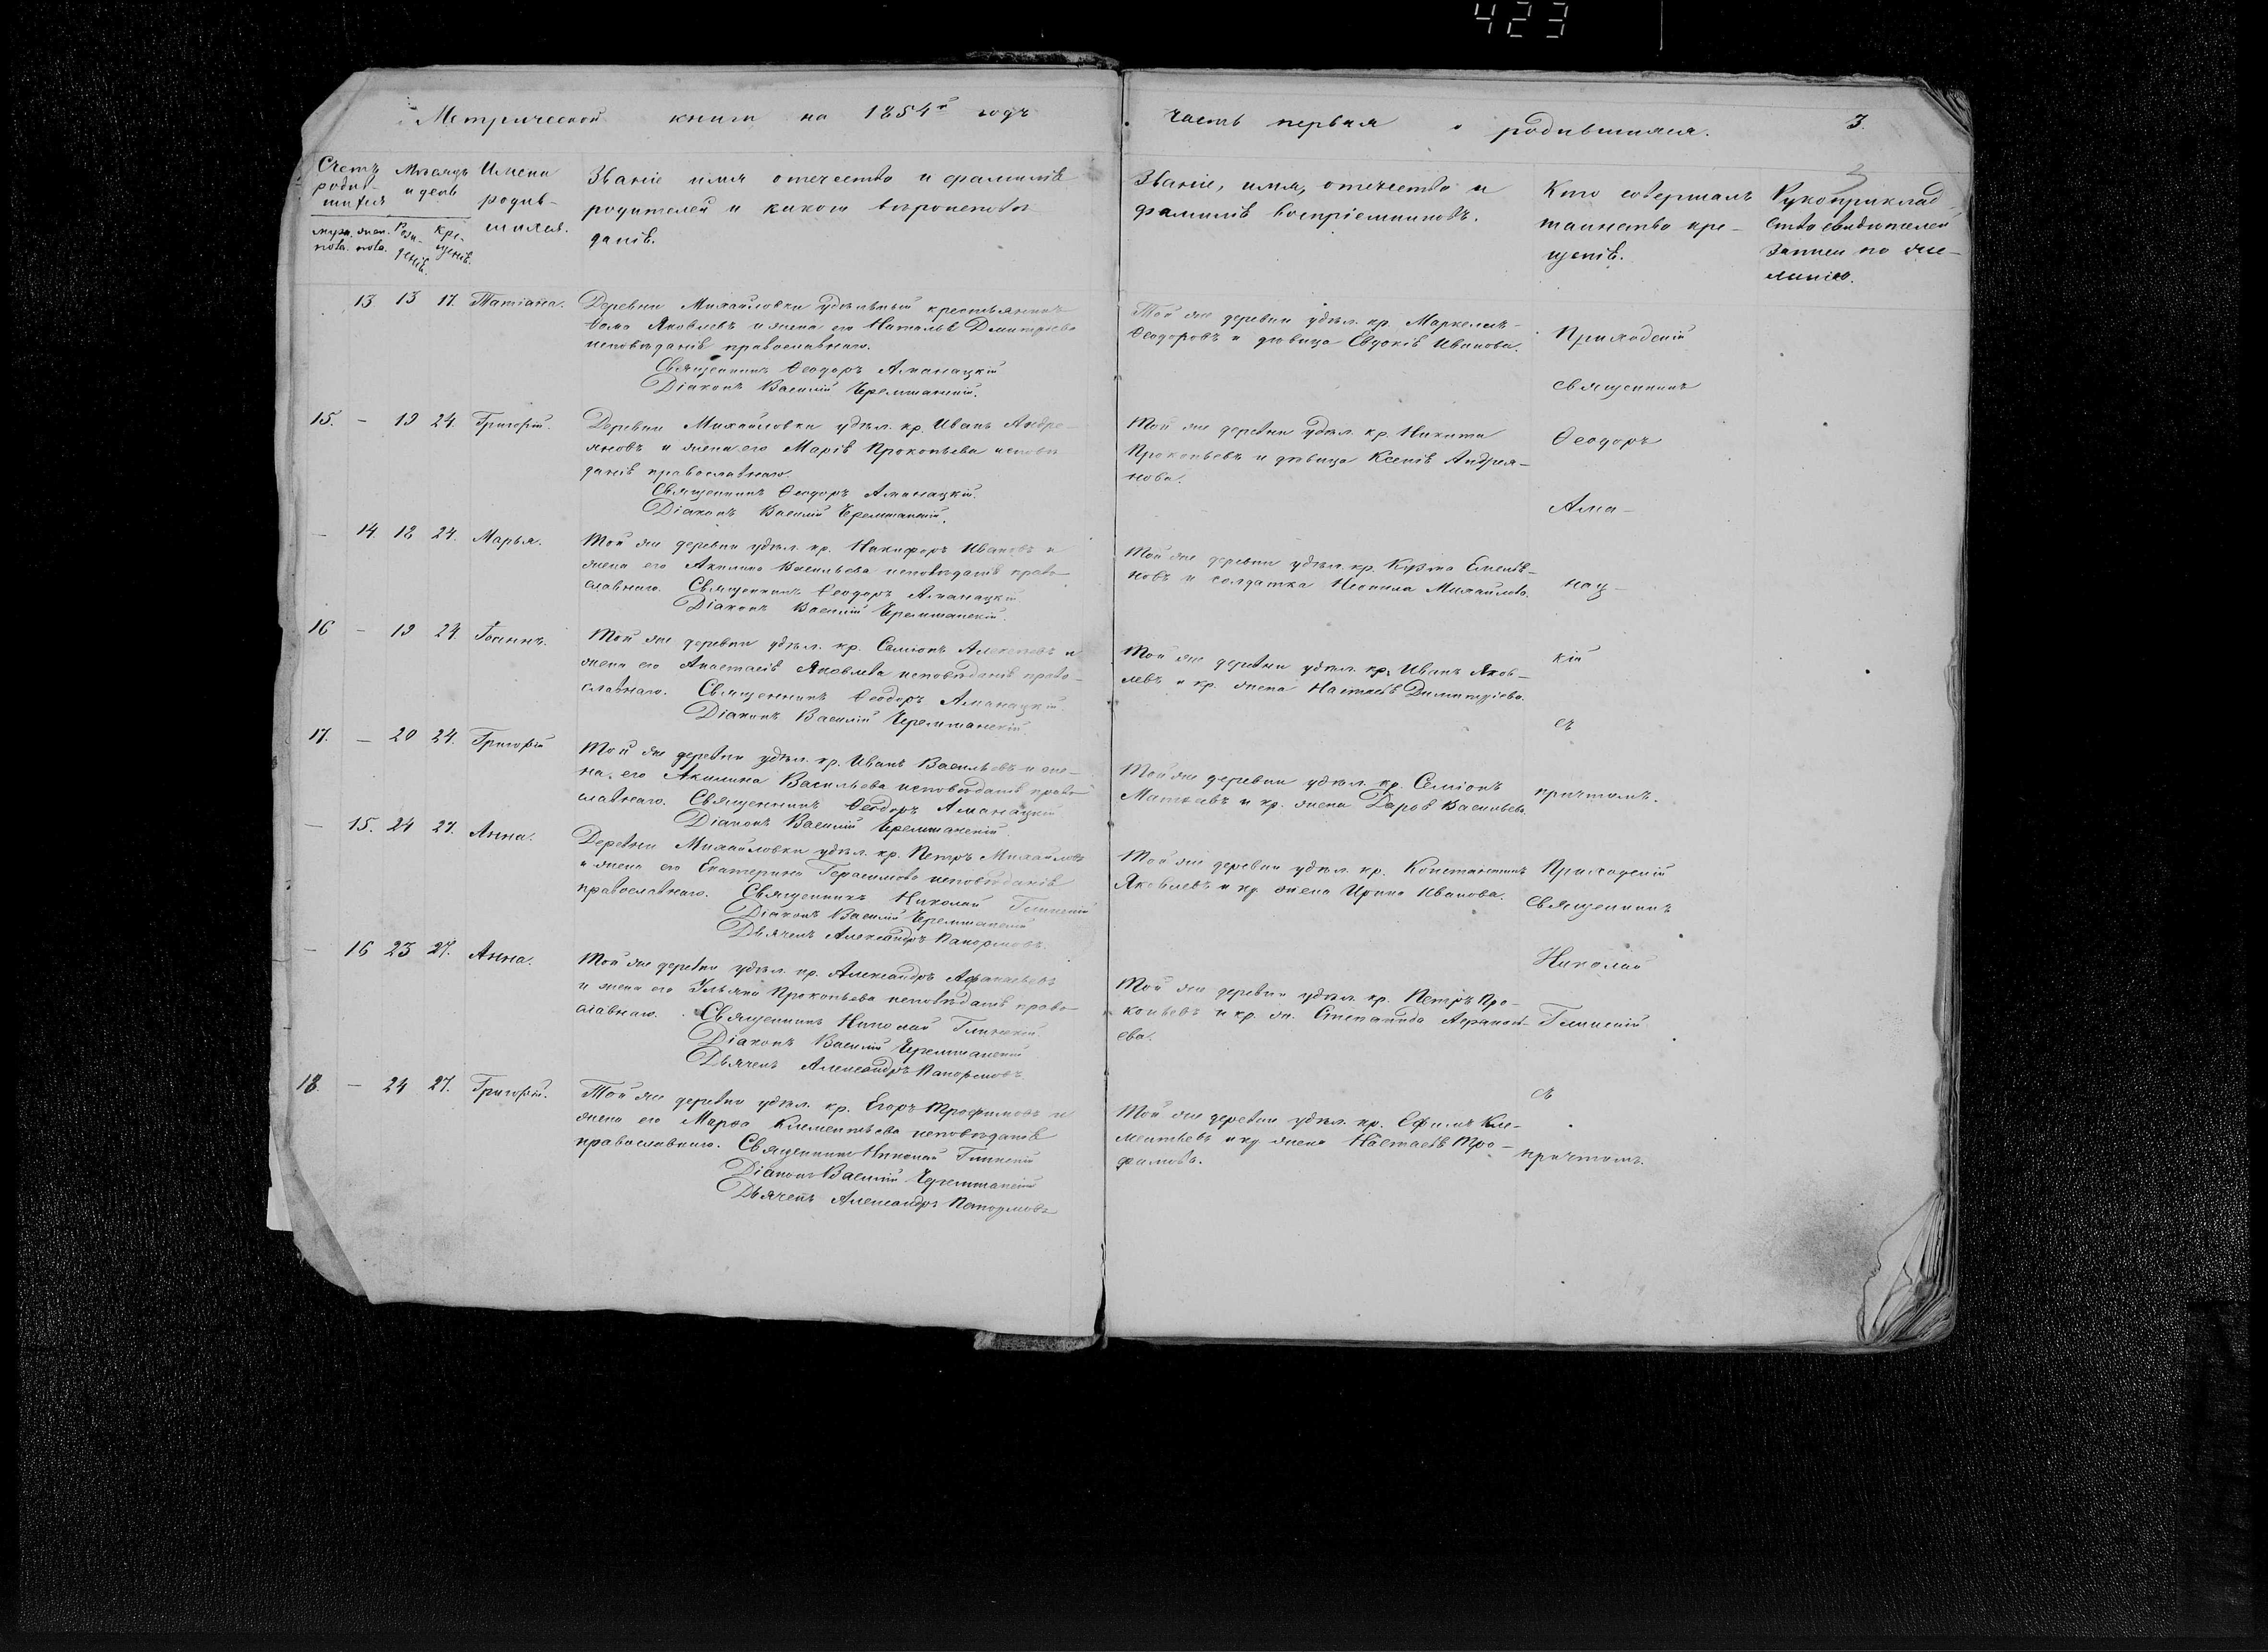 423
Метрической книги на 1854й годъ
часть первая о родившихся.
3.
Счетъ родив-шихся
мужеска пола. женска пола.
Мѣсяцъ и день
Рожденія. Крещенія.
Имена
родив-
шихся.
Званіе имя отечество и фамилія
родителей и какого вѣроисповѣ
данія.
Званіе, имя, отечество и
фамилія воспріемниковъ.
Кто совершалъ
таинство кре-
щенія.
Рукоприклад
ство свидѣтелей
записи по же-
ланію.
13 13 17. Татіана.
Деревни Михайловки удѣльный крестьянинъ
Ѳома Яковлевъ и жена его Наталья Дмитріева
исповѣданія православнаго.
Священникъ Ѳеодоръ Аманацкій
Діаконъ Василій Черемшанскій.
Той же деревни удѣл. кр. Маркеллъ
Ѳеодоровъ и дѣвица Евдокія Иванова.
Приходскій
священникъ
15. – 19 24. Григорій.
Деревни Михайловки удѣл. кр. Иванъ Андре-
яновъ и жена его Марія Прокопьева исповѣ
данія православнаго.
Священникъ Ѳеодоръ Аманацкій.
Діаконъ Василій Черемшанскій.
Той же деревни удѣл. кр. Никита
Прокопьевъ и дѣвица Ксенія Андрея-
нова.
Ѳеодоръ
Ама-
– 14. 18 24. Марья.
Той же деревни удѣл. кр. Никифоръ Ивановъ и
жена его Акилина Васильева исповѣданія право-
славнаго. Священникъ Ѳеодоръ Аманацкій
Діаконъ Василій Черемшанскій.
Той же деревни удѣл. кр. Кузма Емелья-
новъ и солдатка Михайлова.
нац-
16 – 19 24. Іоаннъ.
Той же деревни удѣл. кр. Семіонъ Алексѣевъ и
жена его Анастасія Яковлева исповѣданія право-
славнаго. Священникъ Ѳеодоръ Аманацкій
Діаконъ Василій Черемшанскій.
Той же деревни удѣл. кр. Иванъ Яков-
левъ и кр. жена Настасья Димитріева.
кій
съ
17. – 20 24. Григорій
Той же деревни удѣл. кр. Иванъ Васильевъ и же-
на его Акилина Васильева исповѣданія право
славнаго. Священникъ Ѳеодоръ Аманацкій
Діаконъ Василій Черемшанскій.
Той же деревни удѣл. кр. Семіонъ
Матвѣевъ и кр. жена Дарья Васильева.
причтомъ.
– 15. 24 27. Анна.
Деревни Михайловки удѣл. кр. Петръ Михайловъ
и жена его Екатерина Герасимова исповѣданія
православнаго. Священникъ Николай
Діаконъ Василій Черемшанскій
Дьячекъ Александръ
Той же деревни удѣл. кр. Константинъ
Яковлевъ и кр. жена Ирина Иванова.
Приходскій
Священникъ
– 16 23 27. Анна.
Той же деревни удѣл. кр. Александръ Афанасьевъ
и жена его Ульяна Прокопьева исповѣданія право-
славнаго. Священникъ Николай
Діаконъ Василій Черемшанскій
Дьячекъ Александръ
Той же деревни удѣл. кр. Петръ Про-
копьевъ и кр. ж. Степанида Афанась-
ева.
Николай
18. – 24 27. Григорій.
Той же деревни удѣл. кр. Егоръ Трофимовъ и
жена его Марѳа Клементьева исповѣданія
православнаго. Священникъ Николай
Діаконъ Василій Черемшанскій
Дьячекъ Александръ
Той же деревни удѣл. кр. Ефимъ Кле-
ментьевъ и кр. жена Настасья Тро-
фимова.
съ
причтомъ.